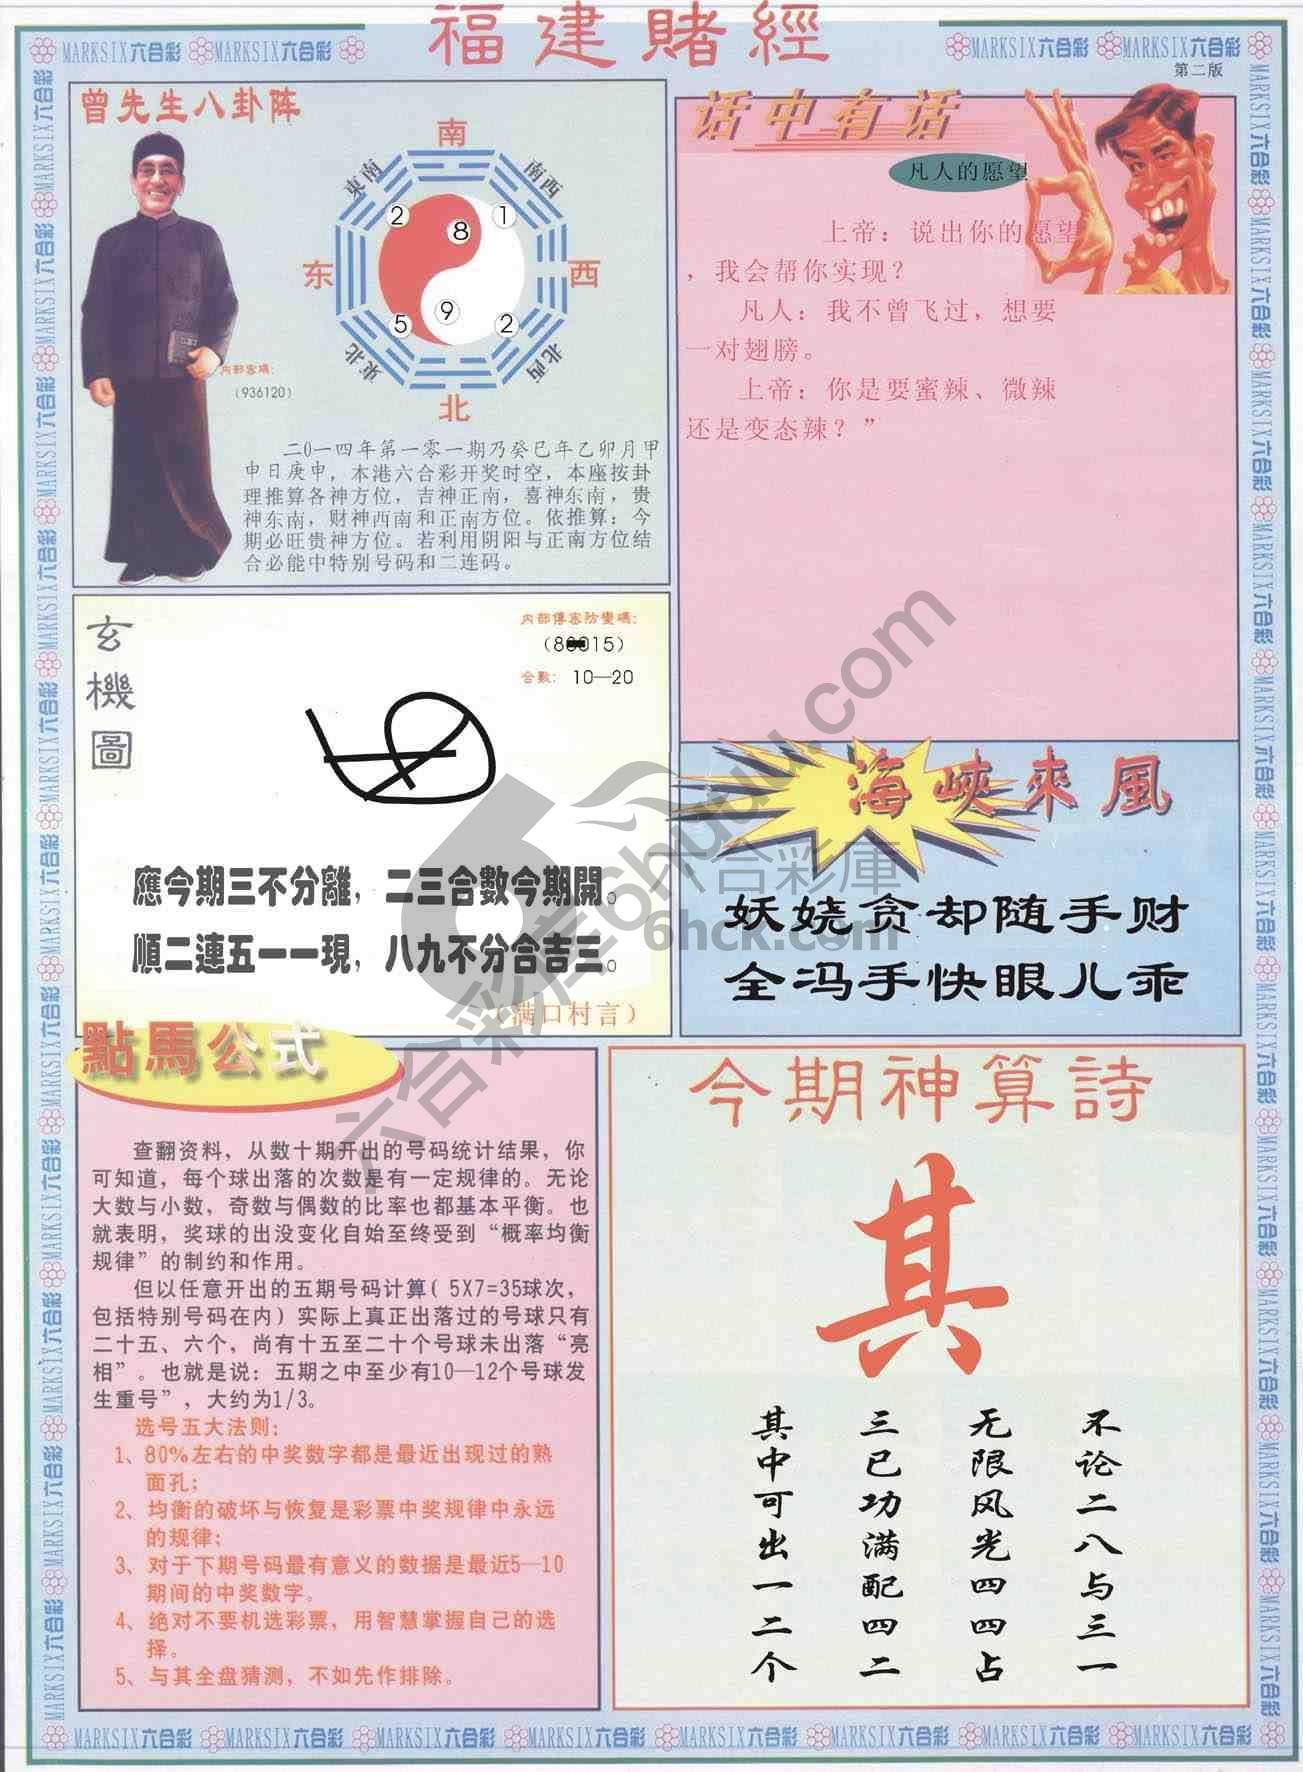 福建賭經
MARKSIX六合彩 MARKSIX六合彩
MARKSIX六合彩 MARKSIX六合彩
第二版
曾先生八卦阵
南
東南
南西
2
8
1
东
西
5
9
2
東北
北西
北
内部密碼：
(936120)
二0一四年第一零一期乃癸巳年乙卯月甲
申日庚申，本港六合彩开奖时空，本座按卦
理推算各神方位，吉神正南，喜神东南，贵
神东南，财神西南和正南方位。依推算：今
期必旺贵神方位。若利用阴阳与正南方位结
合必能中特别号码和二连码。
话中有话
凡人的愿望
上帝：说出你的愿望
，我会帮你实现？
凡人：我不曾飞过，想要
一对翅膀。
上帝：你是要蜜辣、微辣
还是变态辣？”
玄機圖
内部傳密防變碼：
合數： 10—20
應今期三不分離，二三合數今期開。
順二連五一一現，八九不分合吉三。
（满口村言）
海峽來風
妖娆贪却随手财
全冯手快眼儿乖
點馬公式
查翻资料，从数十期开出的号码统计结果，你
可知道，每个球出落的次数是有一定规律的。无论
大数与小数，奇数与偶数的比率也都基本平衡。也
就表明，奖球的出没变化自始至终受到“概率均衡
规律”的制约和作用。
但以任意开出的五期号码计算( 5X7=35球次，
包括特别号码在内）实际上真正出落过的号球只有
二十五、六个，尚有十五至二十个号球未出落“亮
相”。也就是说：五期之中至少有10—12个号球发
生重号”，大约为1/3。
选号五大法则：
1、80%左右的中奖数字都是最近出现过的熟
面孔；
2、均衡的破坏与恢复是彩票中奖规律中永远
的规律；
3、对于下期号码最有意义的数据是最近5—10
期间的中奖数字。
4、绝对不要机选彩票，用智慧掌握自己的选
择。
5、与其全盘猜测，不如先作排除。
今期神算詩
其
不论二八与三一
无限风光四四占
三已功满配四二
其中可出一二个
六合彩库6huuu.com
六合彩庫
6hck.com
MARKSIX六合彩 MARKSIX六合彩 MARKSIX六合彩 MARKSIX六合彩 MARKSIX六合彩 MARKSIX六合彩 MARKSIX六合彩 MARKSIX六合彩